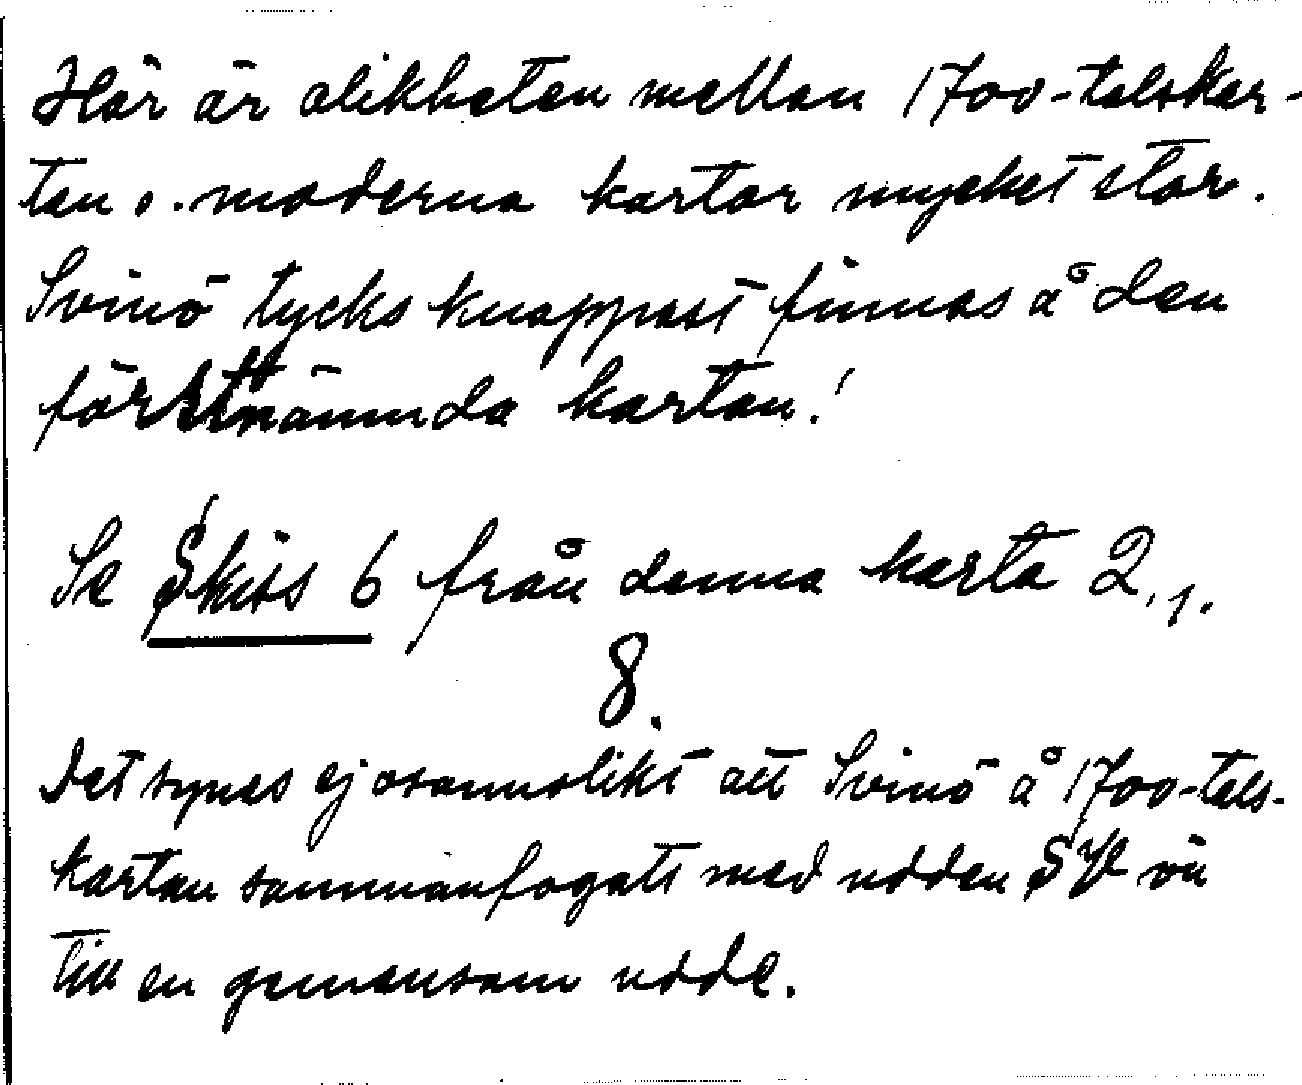 Här är olikheten mellan 1700-talskar-
tan o. moderna kartor mycket stor.
Svinö tycks knappast finnas å den
förstnämnda kartan!
Se Skiss 6 från denna karta 2,1.
8.
Det synes ej osannolikt att Svinö å 1700-tals-
kartan sammanfogats med udden SV
till en gemensam udde.